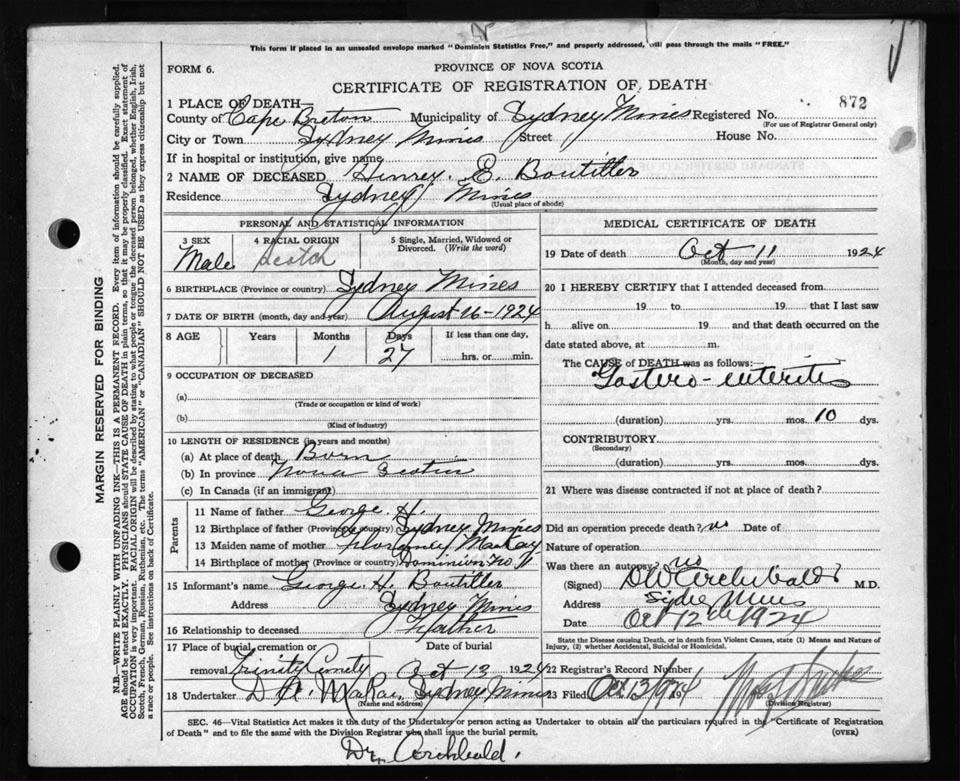 This form if placed in an unsealed envelope marked "Dominion Statistics Free," and properly addressed, will pass through the mails "FREE."
FORM 6.
PROVINCE OF NOVA SCOTIA
CERTIFICATE OF REGISTRATION OF DEATH
872
1 PLACE OF DEATH—
County of Cape Breton Municipality of Sydney Mines Registered No.
(For use of Registrar General only)
City or Town Sydney Mines Street House No.
If in hospital or institution, give name
2 NAME OF DECEASED Henrey. E. Boutilier
Residence Sydney Mines
(Usual place of abode)
PERSONAL AND STATISTICAL INFORMATION
3 SEX 4 RACIAL ORIGIN 5 Single, Married, Widowed or Divorced. (Write the word)
Male Scotch
6 BIRTHPLACE (Province or country) Sydney Mines
7 DATE OF BIRTH (month, day and year) August 16-1924
8 AGE Years Months Days If less than one day,
1 27 hrs. or min.
9 OCCUPATION OF DECEASED
(a)
(Trade or occupation or kind of work)
(b)
(Kind of industry)
10 LENGTH OF RESIDENCE (in years and months)
(a) At place of death Born
(b) In province Nova Scotia
(c) In Canada (if an immigrant)
Parents
11 Name of father George H.
12 Birthplace of father (Province or country) Sydney Mines
13 Maiden name of mother MacKay
14 Birthplace of mother (Province or country) Dominion No
15 Informant's name George H. Boutilier
Address Sydney Mines
16 Relationship to deceased Father
17 Place of burial, cremation or removal Date of burial
Trinity Oct 13 1924
18 Undertaker D. A. Sydney Mines
(Name and address)
MEDICAL CERTIFICATE OF DEATH
19 Date of death Oct 11 1924
(Month, day and year)
20 I HEREBY CERTIFY that I attended deceased from
19 to 19 that I last saw
h alive on 19 and that death occurred on the
date stated above, at m.
The CAUSE of DEATH was as follows:
Gastero-enterites
(duration) yrs. mos. 10 dys.
CONTRIBUTORY
(Secondary)
(duration) yrs. mos. dys.
21 Where was disease contracted if not at place of death?
Did an operation precede death? no Date of
Nature of operation
Was there an autopsy? no
(Signed) Archibald M.D.
Address Mines
Date Oct 12 1924
State the Disease causing Death, or in death from Violent Causes, state (1) Means and Nature of Injury, (2) whether Accidental, Suicidal or Homicidal.
22 Registrar's Record Number
23 Filed Oct 13 1924
(Division Registrar)
SEC. 46—Vital Statistics Act makes it the duty of the Undertaker or person acting as Undertaker to obtain all the particulars required in the "Certificate of Registration
of Death" and to file the same with the Division Registrar who shall issue the burial permit.
(OVER)
Dr. Archbald.
MARGIN RESERVED FOR BINDING
N.B.—WRITE PLAINLY WITH UNFADING INK—THIS IS A PERMANENT RECORD. Every item of information should be carefully supplied.
AGE should be stated EXACTLY. PHYSICIANS should STATE CAUSE OF DEATH in plain terms, so that it may be properly classified. Exact statement of
OCCUPATION is very important. RACIAL ORIGIN will be described by stating to what people or tongue the deceased person belonged, whether English, Irish,
Scotch, French, German, Russian, Ruthenian, etc. The terms "AMERICAN" or "CANADIAN" SHOULD NOT BE USED as they express citizenship but not
a race or people. See instructions on back of Certificate.